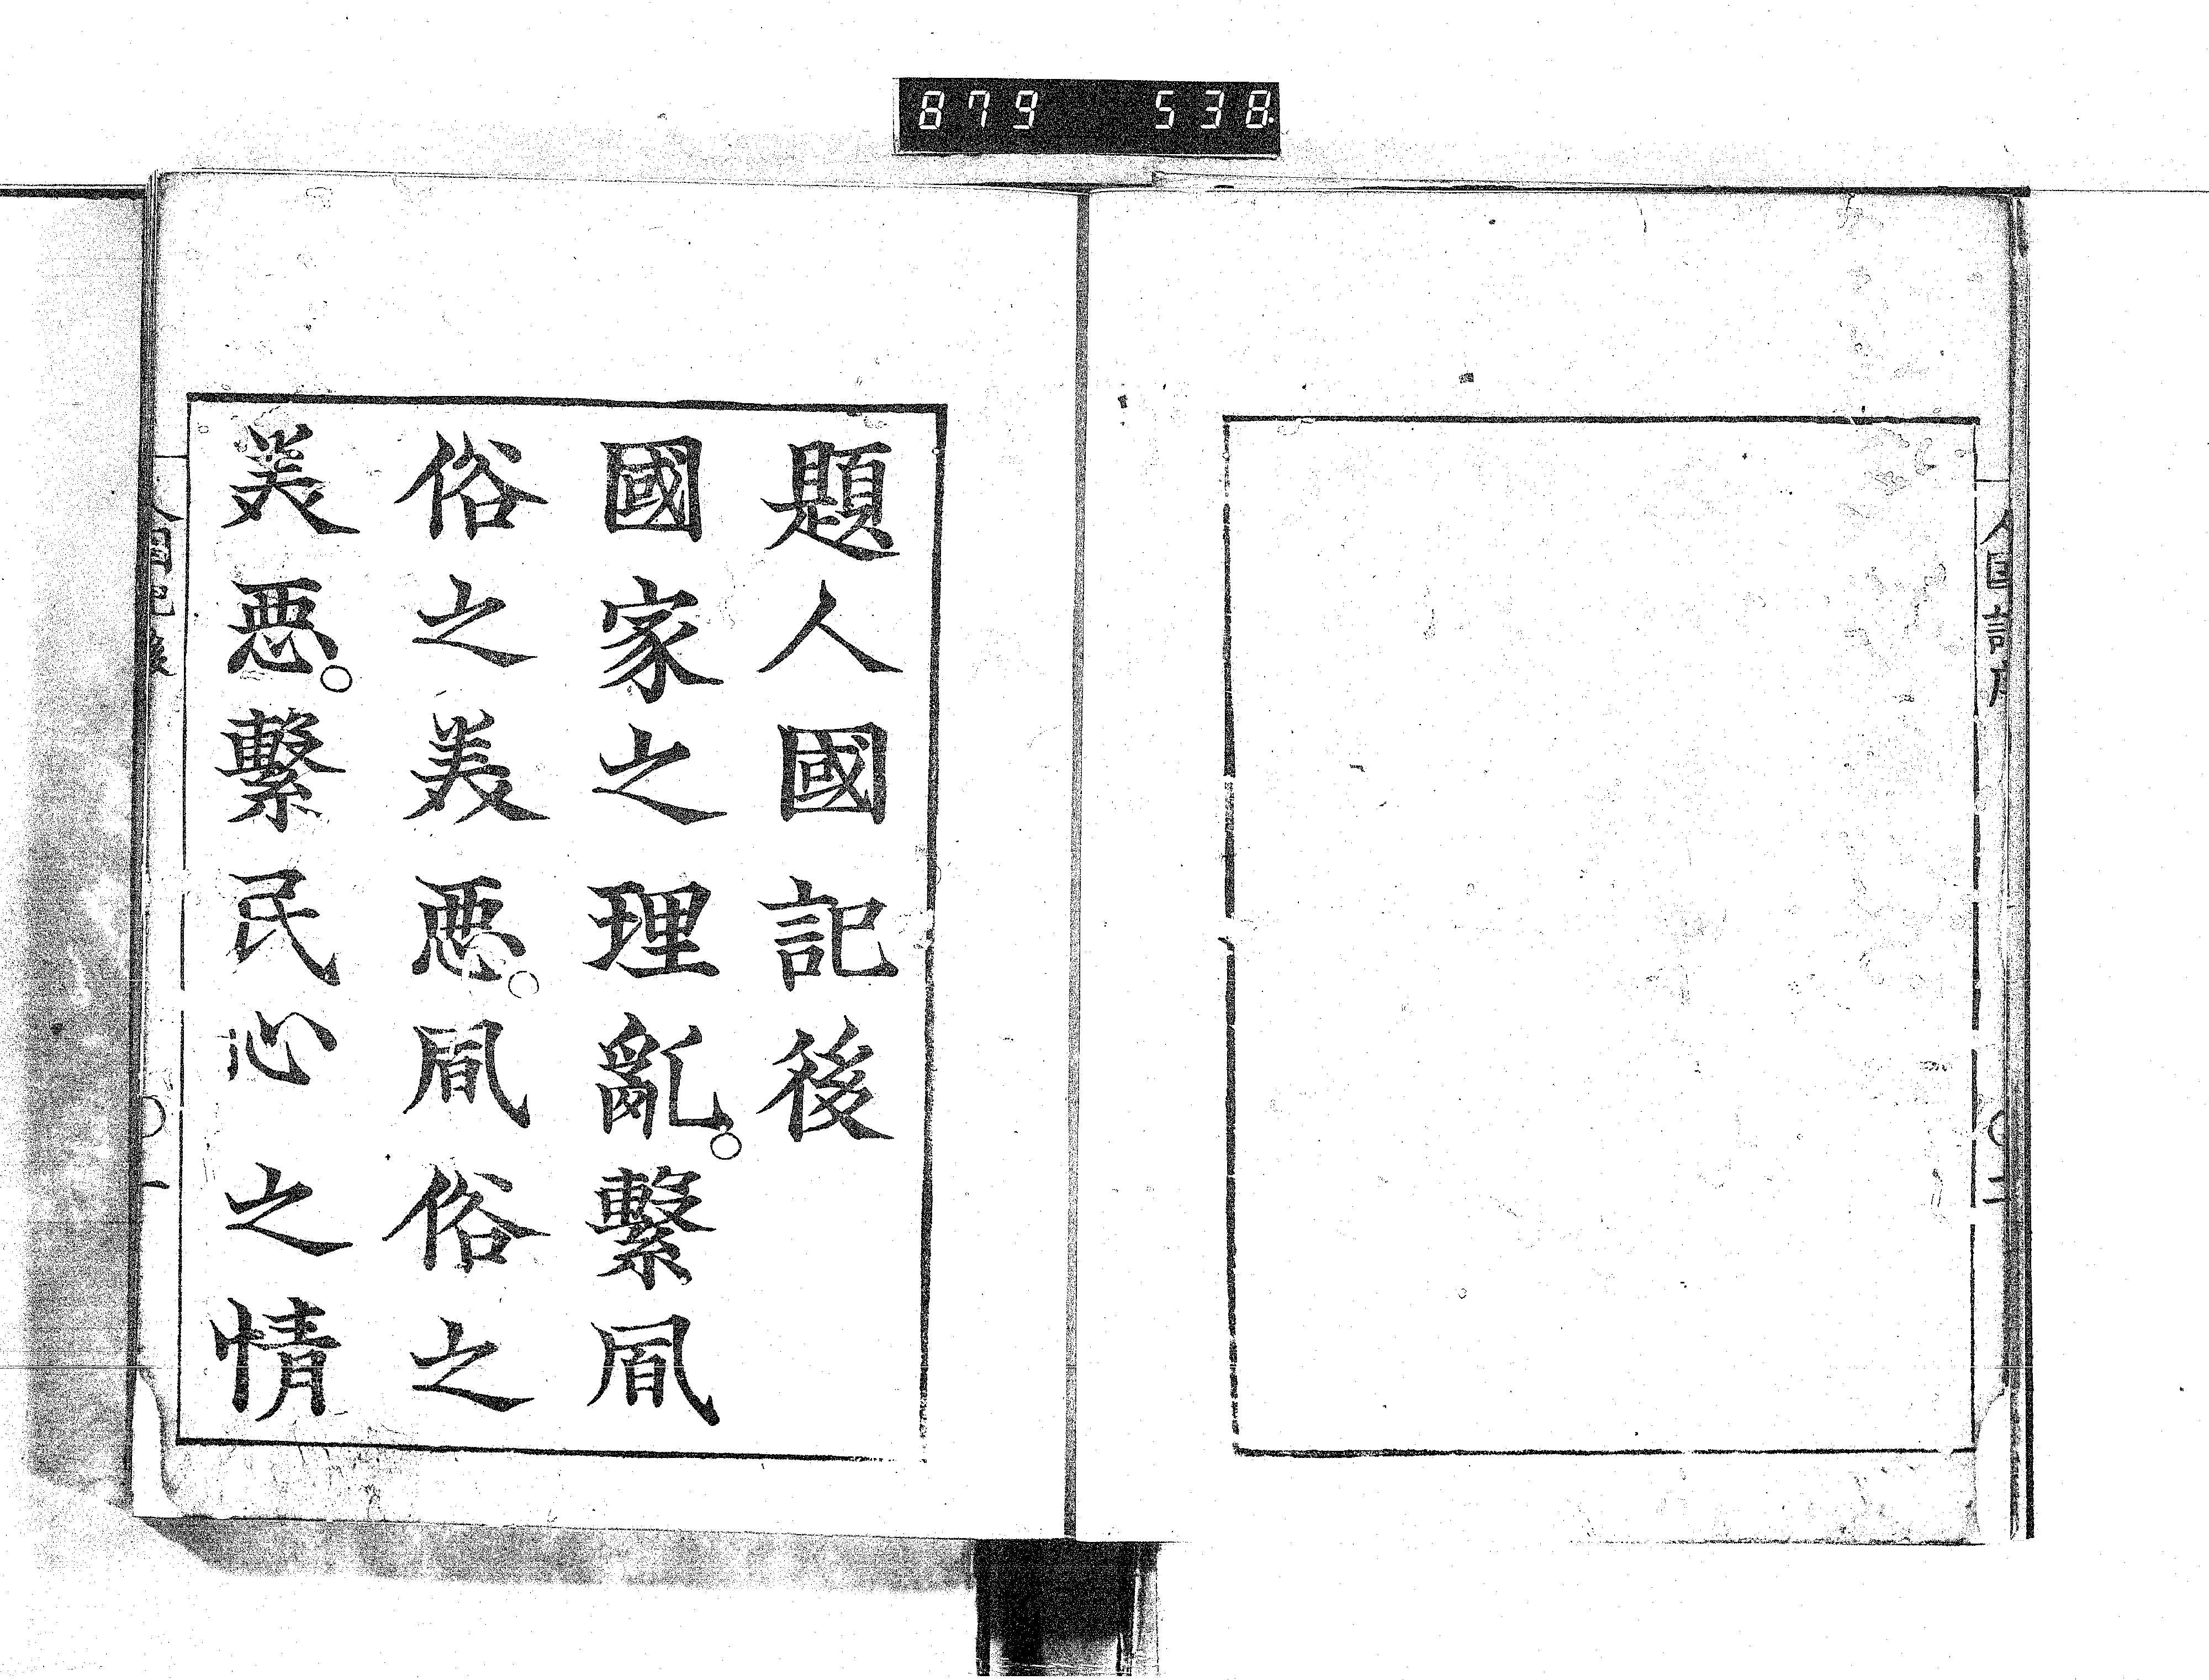 879 538
人国記序
二
題人國記後
國家之理亂。繫風
俗之美惡。風俗之
美惡。繫民心之情
人國記後
一